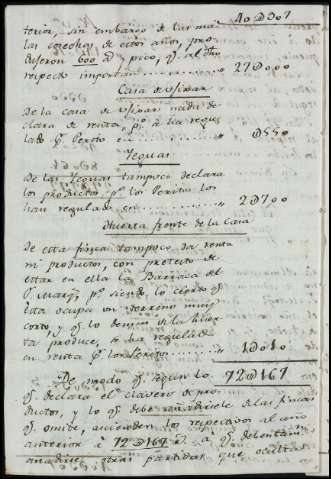 40@307
teria, sin embargo de ser ma
las cosechas de estos años, pro
dujeron 600 @ y pico, qe. al dho
respecto importan ........ 27@000
Casa de
De la Casa de nada de
clara de renta, pr. se ha regu
lado pr. Perito en ........ @550
Yeguas
De las Yeguas tampoco declara
los productos, pr. los Peritos los
han regulado en ........ 2@700
Huerta frente de la Casa
De esta finca tampoco da renta
ni productos, con pretexto de
estar en ella la Barraca del
Sr. Marqs., pr. siendo lo cierto qe.
esta ocupa un terreno muy
corto, y qe. lo demas de la Huer
ta produce, se ha regulado
en renta pr. los Peritos ........ 1@010
De modo qe. segun lo 72@167
qe. declara el clavero de pro
ductos, y lo qe. debe añadirsele de las fincas
qe. omite, ascienden los respectivos al año
anterior à 72@167 à qe. deben tambn.
añadirse otras partidas que oculta